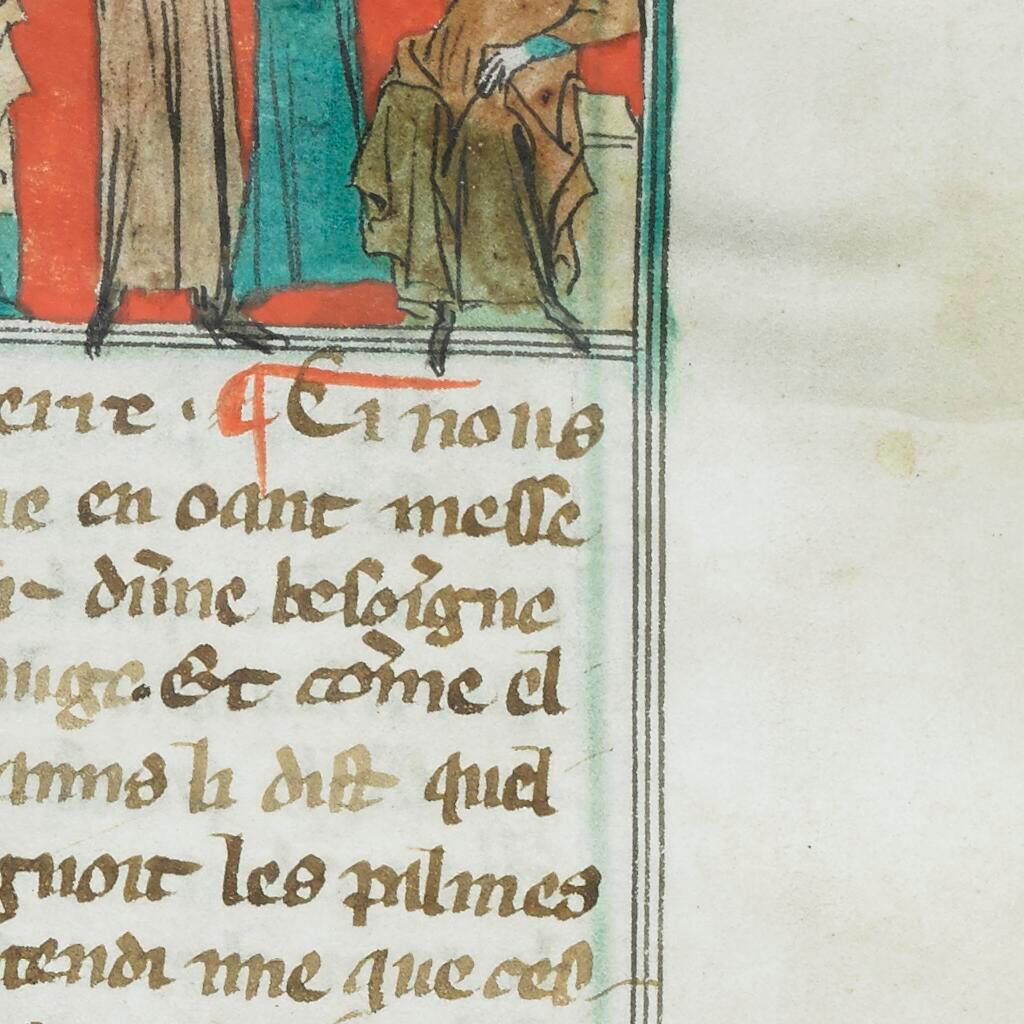 erre · ¶ Ci nous
ue en oant messe
dũne besoĩgne
auge. Et cõme el
anns li dist quel
gnoit les pilmes
tendi me que cest